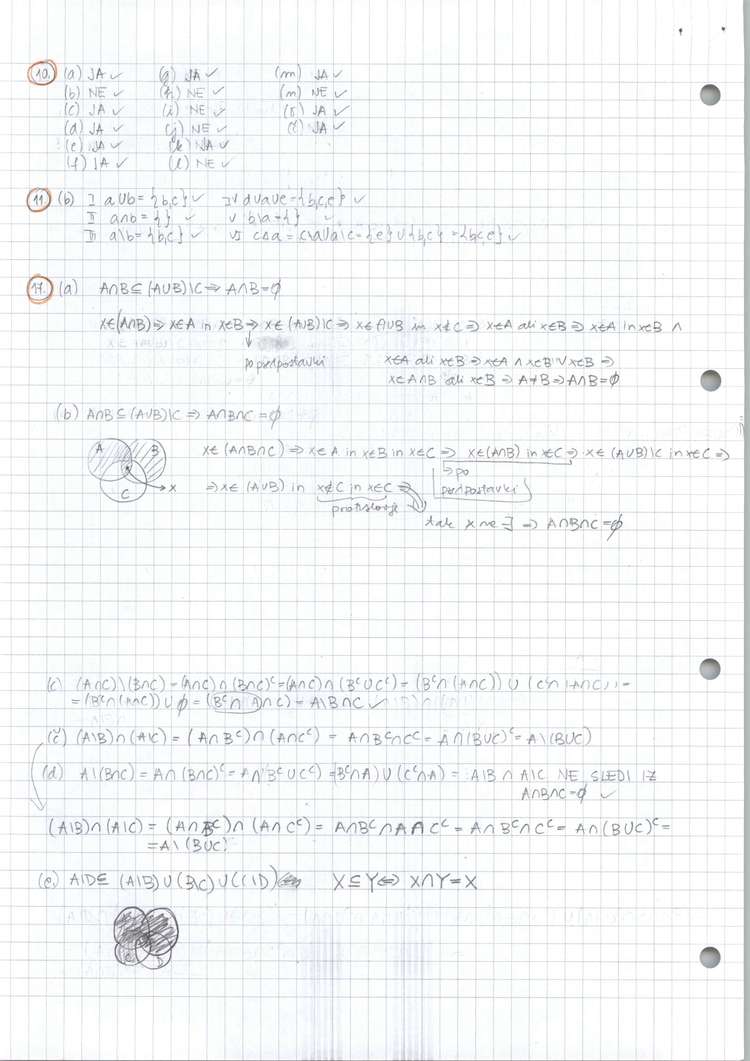 10. (a) JA ✓ (g) JA ✓ (m) JA ✓
(b) NE ✓ (h) NE ✓ (n) NE ✓
(c) JA ✓ (i) NE ✓ (r) JA ✓
(d) JA ✓ (j) NE ✓ (t) JA ✓
(e) JA ✓ (k) JA ✓
(f) JA ✓ (l) NE ✓
11. (b) I a∪b = {b,c} ✓ IV d∪a∪e = {b,c,e} ✓
II a∩b = { } ✓ V b\a = { } ✓
III a\b = {b,c} ✓ VI c∆a = c\a∪a\c = {e}∪{b,c} = {b,c,e} ✓
17. (a) A∩B ⊆ (A∪B)\C ⇒ A∩B = ∅
x∈(A∩B) ⇒ x∈A in x∈B ⇒ x∈(A∪B)\C ⇒ x∈A∪B in x∉C ⇒ x∈A ali x∈B ⇒ x∈A in x∈B ∧
po predpostavki x∈A ali x∈B ⇒ x∈A ∧ x∈B ∨ x∈B ⇒
x∈A∩B ali x∈B ⇒ A≠B ⇒ A∩B = ∅
(b) A∩B ⊆ (A∪B)\C ⇒ A∩B∩C = ∅
A B C x
x∈(A∩B∩C) ⇒ x∈A in x∈B in x∈C ⇒ x∈(A∩B) in x∈C ⇒ x∈(A∪B)\C in x∈C ⇒
po predpostavki
⇒ x∈(A∪B) in x∉C in x∈C ⇒
protislovje
tak x ne ∃ ⇒ A∩B∩C = ∅
(c) (A∩C)\(B∩C) = (A∩C)∩(B∩C)ᶜ = (A∩C)∩(Bᶜ∪Cᶜ) = (Bᶜ∩(A∩C)) ∪ (Cᶜ∩(A∩C)) =
= (Bᶜ∩(A∩C)) ∪ ∅ = (Bᶜ∩A∩C) = A\B∩C ✓
(č) (A\B)∩(A\C) = (A∩Bᶜ)∩(A∩Cᶜ) = A∩Bᶜ∩Cᶜ = A∩(B∪C)ᶜ = A\(B∪C)
(d) A\(B∩C) = A∩(B∩C)ᶜ = A∩(Bᶜ∪Cᶜ) = (Bᶜ∩A)∪(Cᶜ∩A) = A\B ∩ A\C NE SLEDI IZ
A∩B∩C = ∅ ✓
(A\B)∩(A\C) = (A∩Bᶜ)∩(A∩Cᶜ) = A∩Bᶜ∩A∩Cᶜ = A∩Bᶜ∩Cᶜ = A∩(B∪C)ᶜ =
= A\(B∪C)
(e) A\D ⊆ (A\B)∪(B\C)∪(C\D) X⊆Y ⇔ X∩Y = X
C D